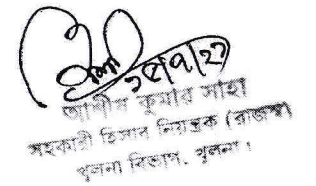 ২৫/৭/২২
আশীষ কুমার সাহা
সহকারী হিসাব নিয়ন্ত্রক (রাজস্ব)
খুলনা বিভাগ, খুলনা।